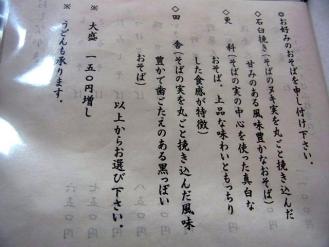 ◎お好みのおそばを申し付け下さい。
◇石臼挽き(そばのヌキ実を丸ごと挽き込んだ
甘みのある風味豊かなおそば)
◇更 科(そばの実の中心を使った真白な
おそば。上品な味わいともっちり
した食感が特徴)
◇田 舎(そばの実を丸ごと挽き込んだ風味
豊かで歯ごたえのある黒っぽい
おそば)
以上からお選び下さい。
※ 大盛 一五〇円増し
※ うどんも承ります。